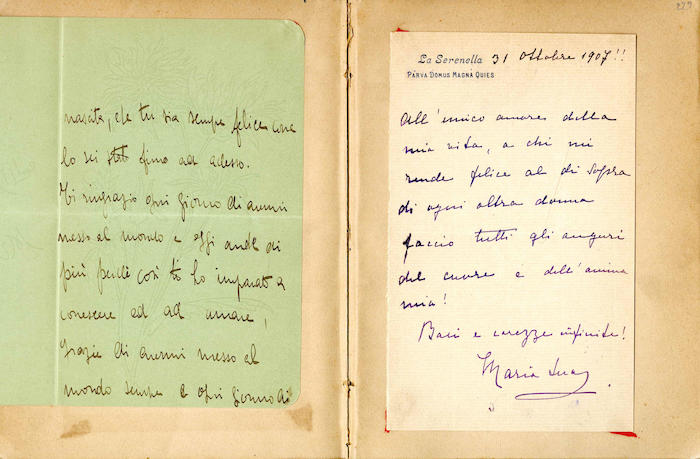 nascita, che tu sia sempre felice come
lo sei stat fino ad adesso.
Ti ringrazio ogni giorno di avermi
messo al mondo e oggi anche di
più perchè così ti ho imparato a
conoscere ed ad amare,
grazie di avermi messo al
mondo sempre e ogni giorno di
279
La Serenella 31 Ottobre 1907!!
PARVA DOMUS MAGNA QUIES
All'unico amore della
mia vita, a chi mi
rende felice al di sopra
di ogni altra donna
faccio tutti gli auguri
del cuore e dell'anima
mia!
Baci e carezze infinite!
Maria